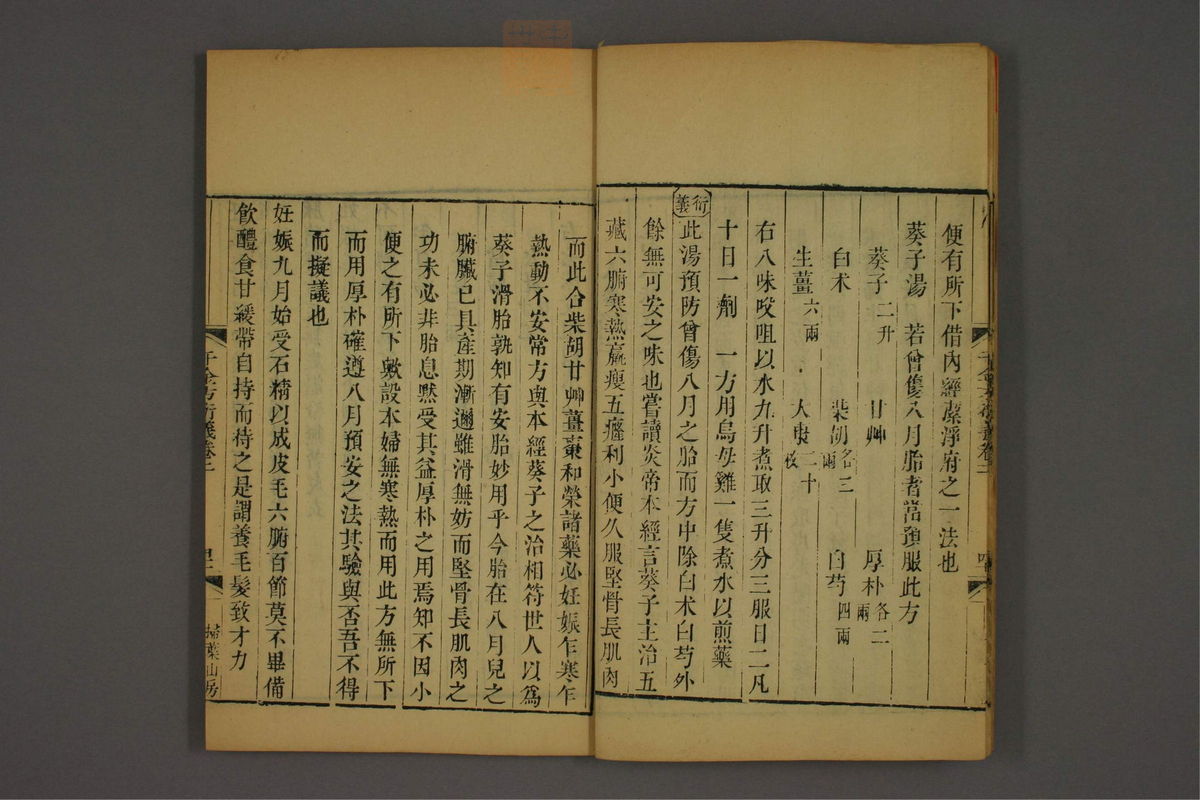 便有所下借內經潔淨府之一法也
葵子湯　若曾傷八月胎者當預服此方
葵子二升　甘艸　厚朴各二兩
白术　柴胡各三兩　白芍四兩
生薑六兩　大棗二十枚
右八味㕮咀以水九升煮取三升分三服日二凡
十日一劑　一方用烏母雞一隻煮水以煎藥
衍義
此湯預防曾傷八月之胎而方中除白术白芍外
餘無可安之味也嘗讀炎帝本經言葵子主治五
藏六腑寒熱羸瘦五癃利小便久服堅骨長肌肉
而此合柴胡甘艸薑棗和榮諸藥必妊娠乍寒乍
熱動不安常方與本經葵子之治相符世人以爲
葵子滑胎孰知有安胎妙用乎今胎在八月兒之
腑臟已具產期漸邇雖滑無妨而堅骨長肌肉之
功未必非胎息黙受其益厚朴之用焉知不因小
便之有所下數設本婦無寒熱而用此方無所下
而用厚朴確遵八月預安之法其驗與否吾不得
而擬議也
妊娠九月始受石精以成皮毛六腑百節莫不畢備
飲醴食甘緩帶自持而待之是謂養毛髮致才力
千金方衍義卷二
掃葉山房